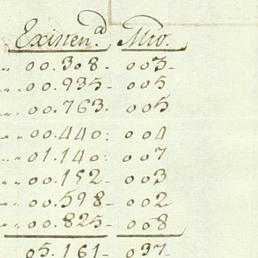 Existen.ª Mro.
00.308- 003-
00.935- 005
00.763. 005
00.440: 004
01.140: 007
00.152- 003
00.598- 002
00.825- 008
05.161- 037-